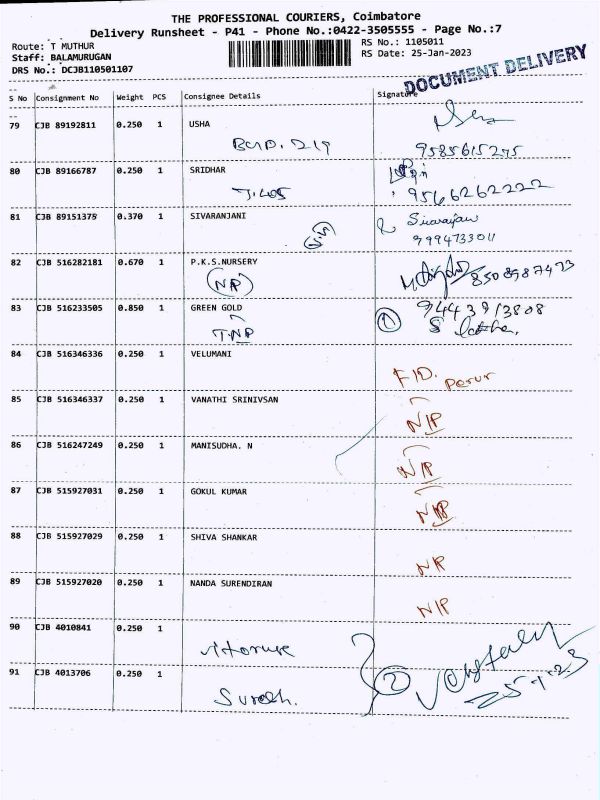 THE PROFESSIONAL COURIERS, Coimbatore
Delivery Runsheet - P41 - Phone No.:0422-3505555 - Page No.:7
Route: T MUTHUR
RS No.: 1105011
Staff: BALAMURUGAN
RS Date: 25-Jan-2023
DRS No.: DCJB110501107
DOCUMENT DELIVERY
S No Consignment No Weight PCS Consignee Details Signature
79 CJB 89192811 0.250 1 USHA
9585615275
80 CJB 89166787 0.250 1 SRIDHAR
T.405 9566262222
81 CJB 89151375 0.370 1 SIVARANJANI
9994733011
82 CJB 516282181 0.670 1 P.K.S.NURSERY
(NP) 8508987493
83 CJB 516233505 0.850 1 GREEN GOLD 9443913808
T.NP 1
84 CJB 516346336 0.250 1 VELUMANI
F/D. Perur
85 CJB 516346337 0.250 1 VANATHI SRINIVSAN
N/P
86 CJB 516247249 0.250 1 MANISUDHA. N
N/P
87 CJB 515927031 0.250 1 GOKUL KUMAR
N/P
88 CJB 515927029 0.250 1 SHIVA SHANKAR
NP
89 CJB 515927020 0.250 1 NANDA SURENDIRAN
N/P
90 CJB 4010841 0.250 1
91 CJB 4013706 0.250 1
Suresh. 2 25-1-23